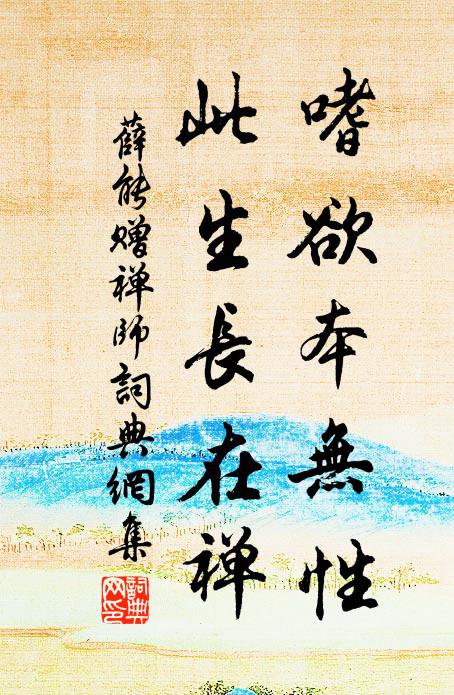 嗜欲本無性
此生長在禅
薛能赠禅师詞典網集
詞典網印